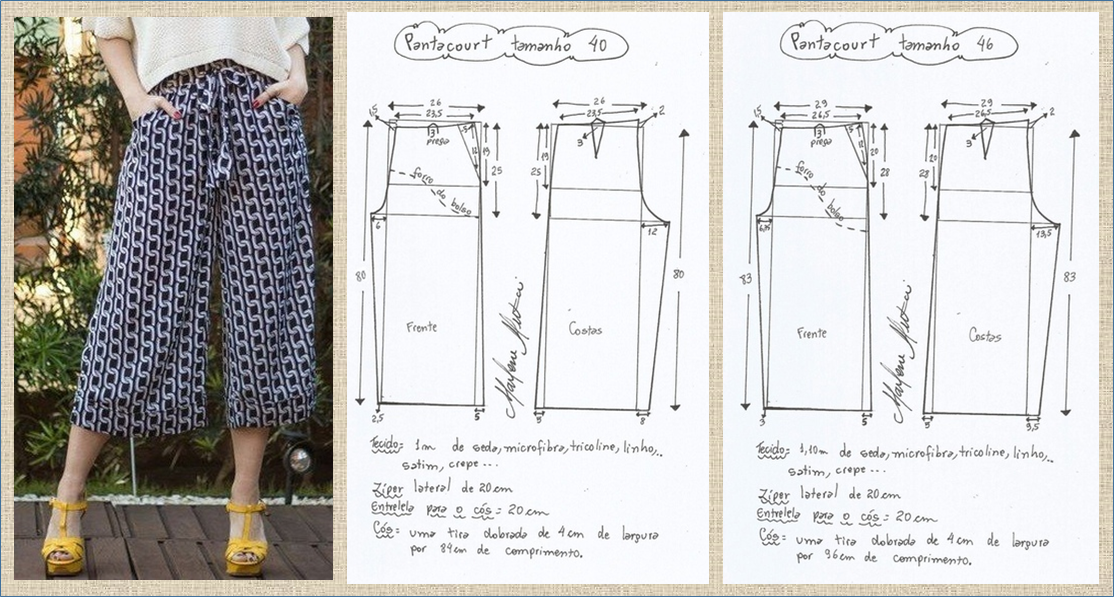 Pantacourt tamanho 40
26
23,5
1,5
2
3
prega
5
12
19
25
forro do bolso
6
80
Frente
2,5
5
26
23,5
2
3
19
25
12
80
Costas
5
8
Marlene Mukai
Tecido: 1m de seda, microfibra, tricoline, linho,..
satim, crepe ...
Zíper lateral de 20cm
Entretela para o cós = 20cm
Cós: uma tira dobrada de 4cm de largura
por 84cm de comprimento.
Pantacourt tamanho 46
29
26,5
1,5
3
prega
5
12
20
28
forro do bolso
6,75
83
Frente
3
5
29
26,5
2
3
20
28
13,5
83
Costas
5
9,5
Marlene Mukai
Tecido: 1,10m de seda, microfibra, tricoline, linho,..
satim, crepe ...
Zíper lateral de 20cm
Entretela para o cós = 20cm
Cós: uma tira dobrada de 4cm de largura
por 96cm de comprimento.